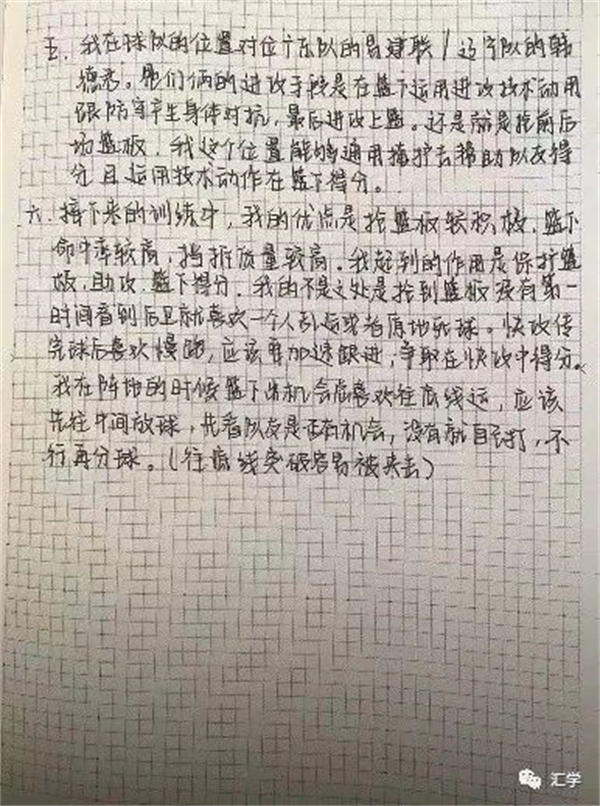 五、我在球队的位置对位广东队的易建联/辽宁队的韩
德君。他们俩的进攻手段是在篮下运用进攻技术动用
跟防守产生身体对抗,最后进攻上篮。还是就是抢前后
场篮板,我这个位置能够通用掩护去帮助队友得
分且运用技术动作在篮下得分。
六、接下来的训练中,我的优点是抢篮板较积极,篮下
命中率较高,挡拆质量较高。我起到的作用是保护篮
板,助攻,篮下得分。我的不足之处是抢到篮板没有第一
时间看到后卫就喜欢一个人乱运或者原地死球。快攻传
完球后喜欢慢跑,应该再加速跟进,争取在快攻中得分。
我在阵地的时候篮下出机会后喜欢往底线运,应该
先往中间放球,先看队友是否有机会,没有就自己打,不
行再分球。(往底线突破容易被夹击)
汇学